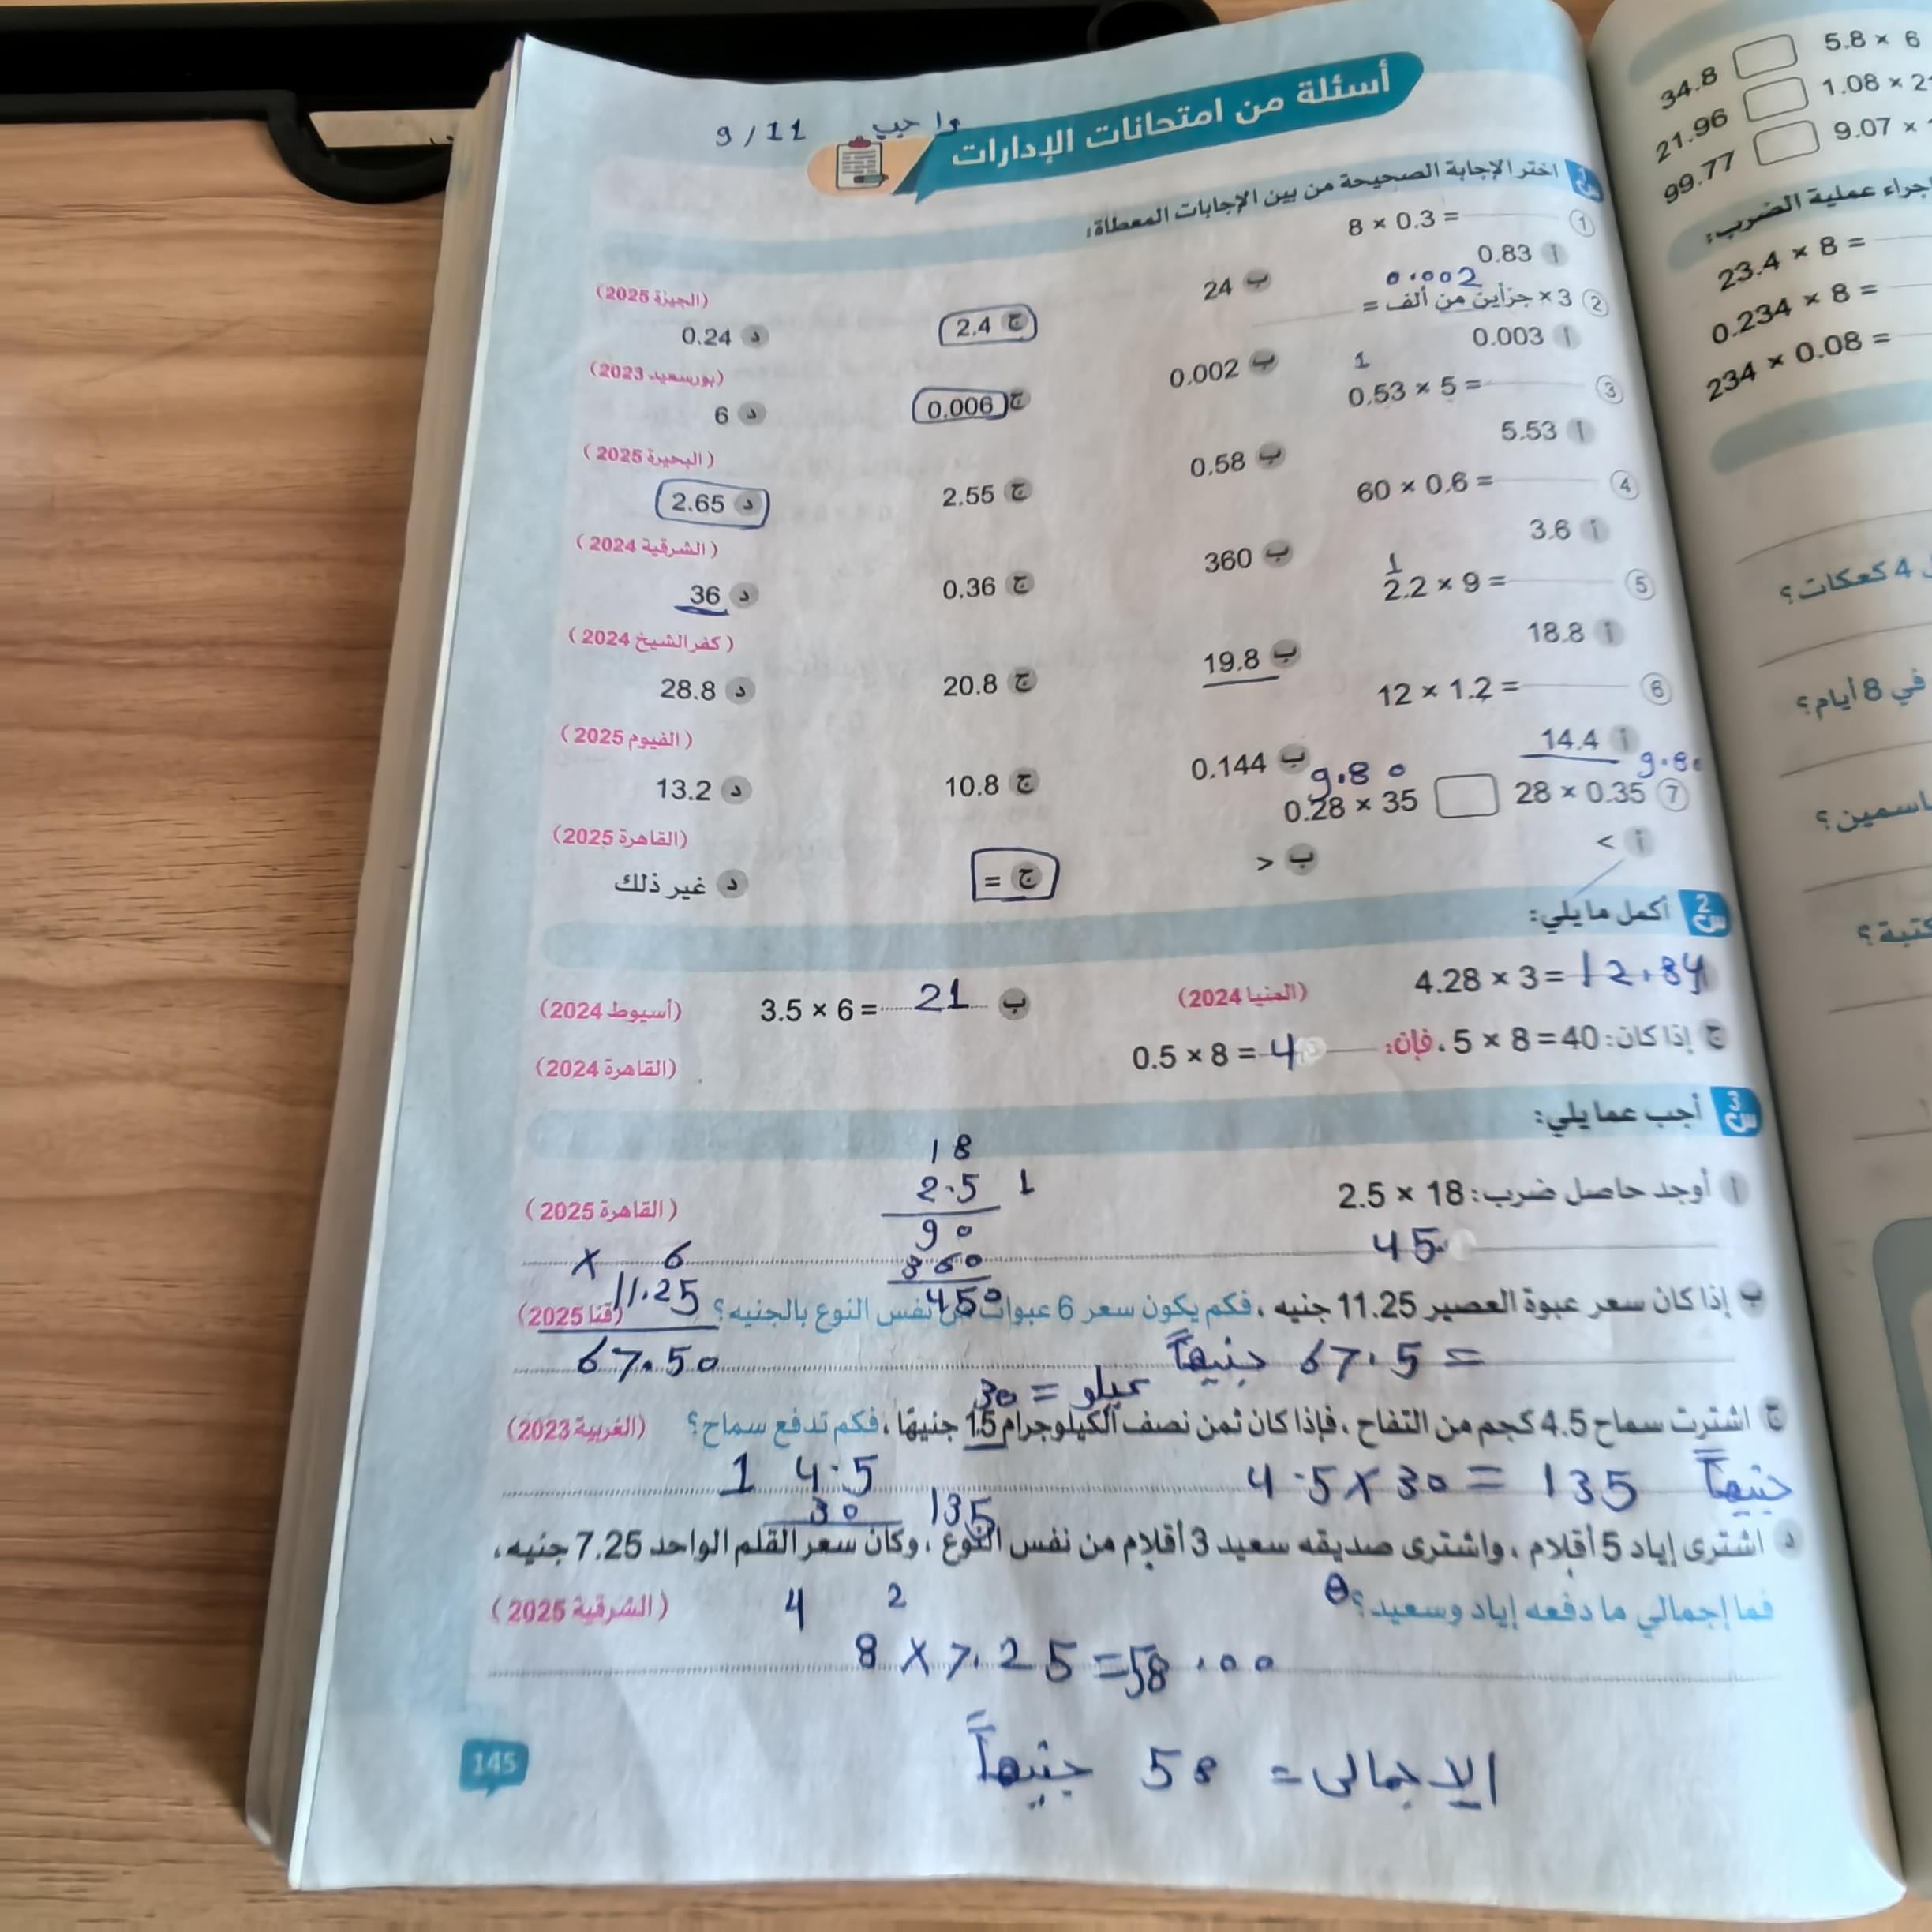 واجب 9 / 11
أسئلة من امتحانات الإدارات
س1 اختر الإجابة الصحيحة من بين الإجابات المعطاة:
1 8 × 0.3 =
أ 0.83 ب 24 ج 2.4 د 0.24 (الجيزة 2025)
0.002
2 3 × جزأين من ألف =
أ 0.003 ب 0.002 ج 0.006 د 6 (بورسعيد 2023)
1
3 0.53 × 5 =
أ 5.53 ب 0.58 ج 2.55 د 2.65 (البحيرة 2025)
4 60 × 0.6 =
أ 3.6 ب 360 ج 0.36 د 36 (الشرقية 2024)
1
5 2.2 × 9 =
أ 18.8 ب 19.8 ج 20.8 د 28.8 (كفر الشيخ 2024)
6 12 × 1.2 =
أ 14.4 ب 0.144 ج 10.8 د 13.2 (الفيوم 2025)
9.80 9.80
7 28 × 0.35 0.28 × 35
أ < ب > ج = د غير ذلك (القاهرة 2025)
س2 أكمل ما يلي:
4.28 × 3 = 12.84 (المنيا 2024) ب 3.5 × 6 = 21 (أسيوط 2024)
ج إذا كان: 5 × 8 = 40، فإن: 0.5 × 8 = 4 (القاهرة 2024)
س3 أجب عما يلي:
أ أوجد حاصل ضرب: 2.5 × 18 (القاهرة 2025)
18
2.5 1
90
360
450
45
ب إذا كان سعر عبوة العصير 11.25 جنيه، فكم يكون سعر 6 عبوات من نفس النوع بالجنيه؟ (قنا 2025)
× 6
11.25
67.50
= 67.5 جنيهاً
كيلو = 30
ج اشترت سماح 4.5 كجم من التفاح، فإذا كان ثمن نصف الكيلوجرام 15 جنيهًا، فكم تدفع سماح؟ (الغربية 2023)
4.5 × 30 = 135 جنيهاً
1 4.5
30 135
د اشترى إياد 5 أقلام، واشترى صديقه سعيد 3 أقلام من نفس النوع، وكان سعر القلم الواحد 7.25 جنيه،
فما إجمالي ما دفعه إياد وسعيد؟ (الشرقية 2025)
4 2
8 × 7.25 = 58.00
الاجمالى = 58 جنيهاً
145
5.8 × 6 34.8
1.08 × 2 21.96
9.07 × 99.77
إجراء عملية الضرب:
23.4 × 8 =
0.234 × 8 =
234 × 0.08 =
4 كعكات؟
في 8 أيام؟